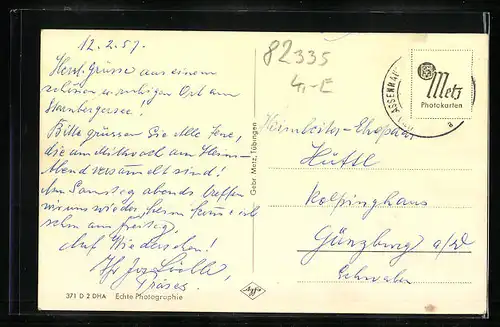 12.2.57.
Herzl. Grüsse aus einem
schönen u. ruhigen Ort am
Starnbergersee.
Bitte grüssen Sie Alle Jene,
die am Mittwoch am Heim-
Abend versammelt sind!
Am Samstag abends treffen
wir uns wieder,
schon am Freitag.
Auf Wiedersehen!
Ihr
Präses.
371 D 2 DHA Echte Photographie
Gebr. Metz, Tübingen
Agfa
82335
4,-E
Metz
Photokarten
a
Hüttl
Kolpinghaus
Günzburg a/d
Schwaben